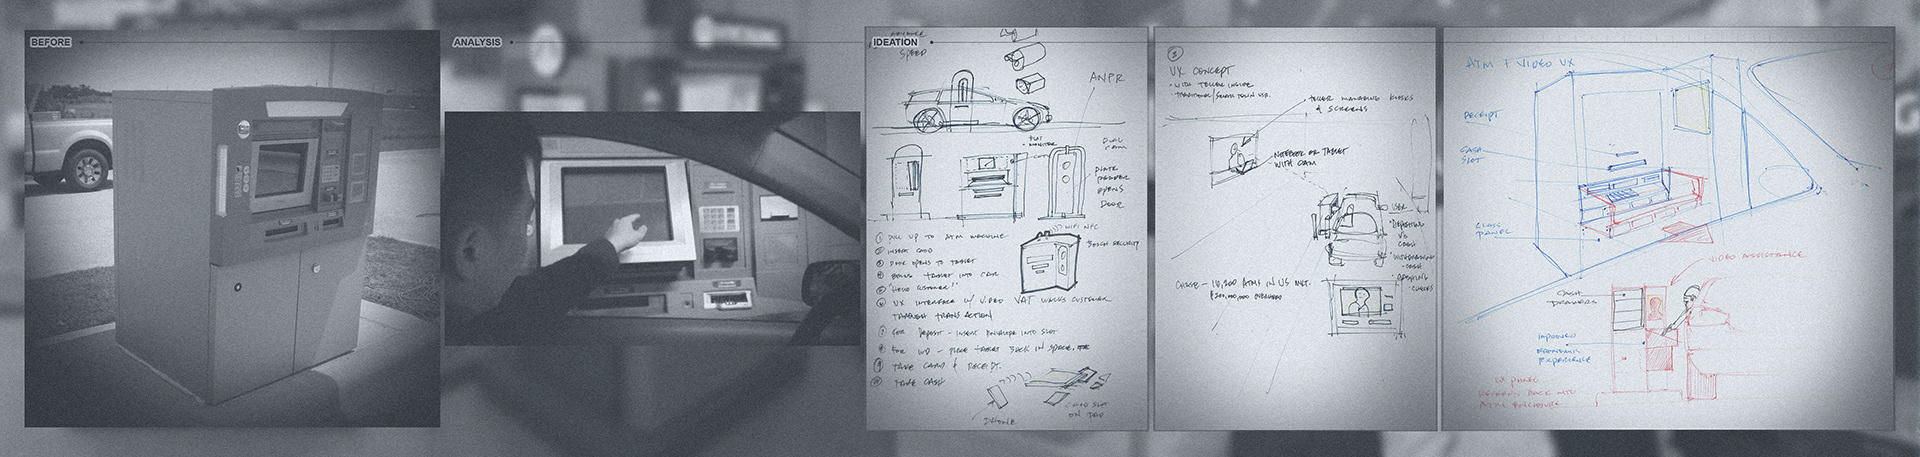 BEFORE
ANALYSIS
IDEATION
SPEED
ANPR
DUAL
CAM
MONITOR
PLATE
READER
OPENS
DOOR
WIFI NFC
SECURITY
① PULL UP TO ATM MACHINE
② INSERT CARD
③ DOOR OPENS TO TABLET
④ BRING TABLET INTO CAR
⑤ "HELLO CUSTOMER!"
⑥ UX INTERFACE W/ VIDEO VAT WALKS CUSTOMER
THROUGH TRANSACTION
⑦ FOR DEPOSIT - INSERT ENVELOPE INTO SLOT
⑧ FOR WD - PLACE TABLET BACK IN SPACE
⑨ TAKE CARD & RECEIPT.
⑩ TAKE CASH
IPHONE
CARD SLOT
ON IPAD
UX CONCEPT
- WITH TELLER INSIDE
TELLER MANAGING KIOSKS
& SCREENS
TABLET
WITH CAM
USER
DEPOSITING
CASH
WITHDRAWING
CASH
CHECKS
CHASE - ATMS IN US
ATM + VIDEO UX
RECEIPT
CASH
SLOT
GLASS
PANEL
VIDEO ASSISTANCE
CASH
DRAWERS
IMPROVED
ERGONOMIC
EXPERIENCE
UX PANEL
BACK INTO
ATM ENCLOSURE